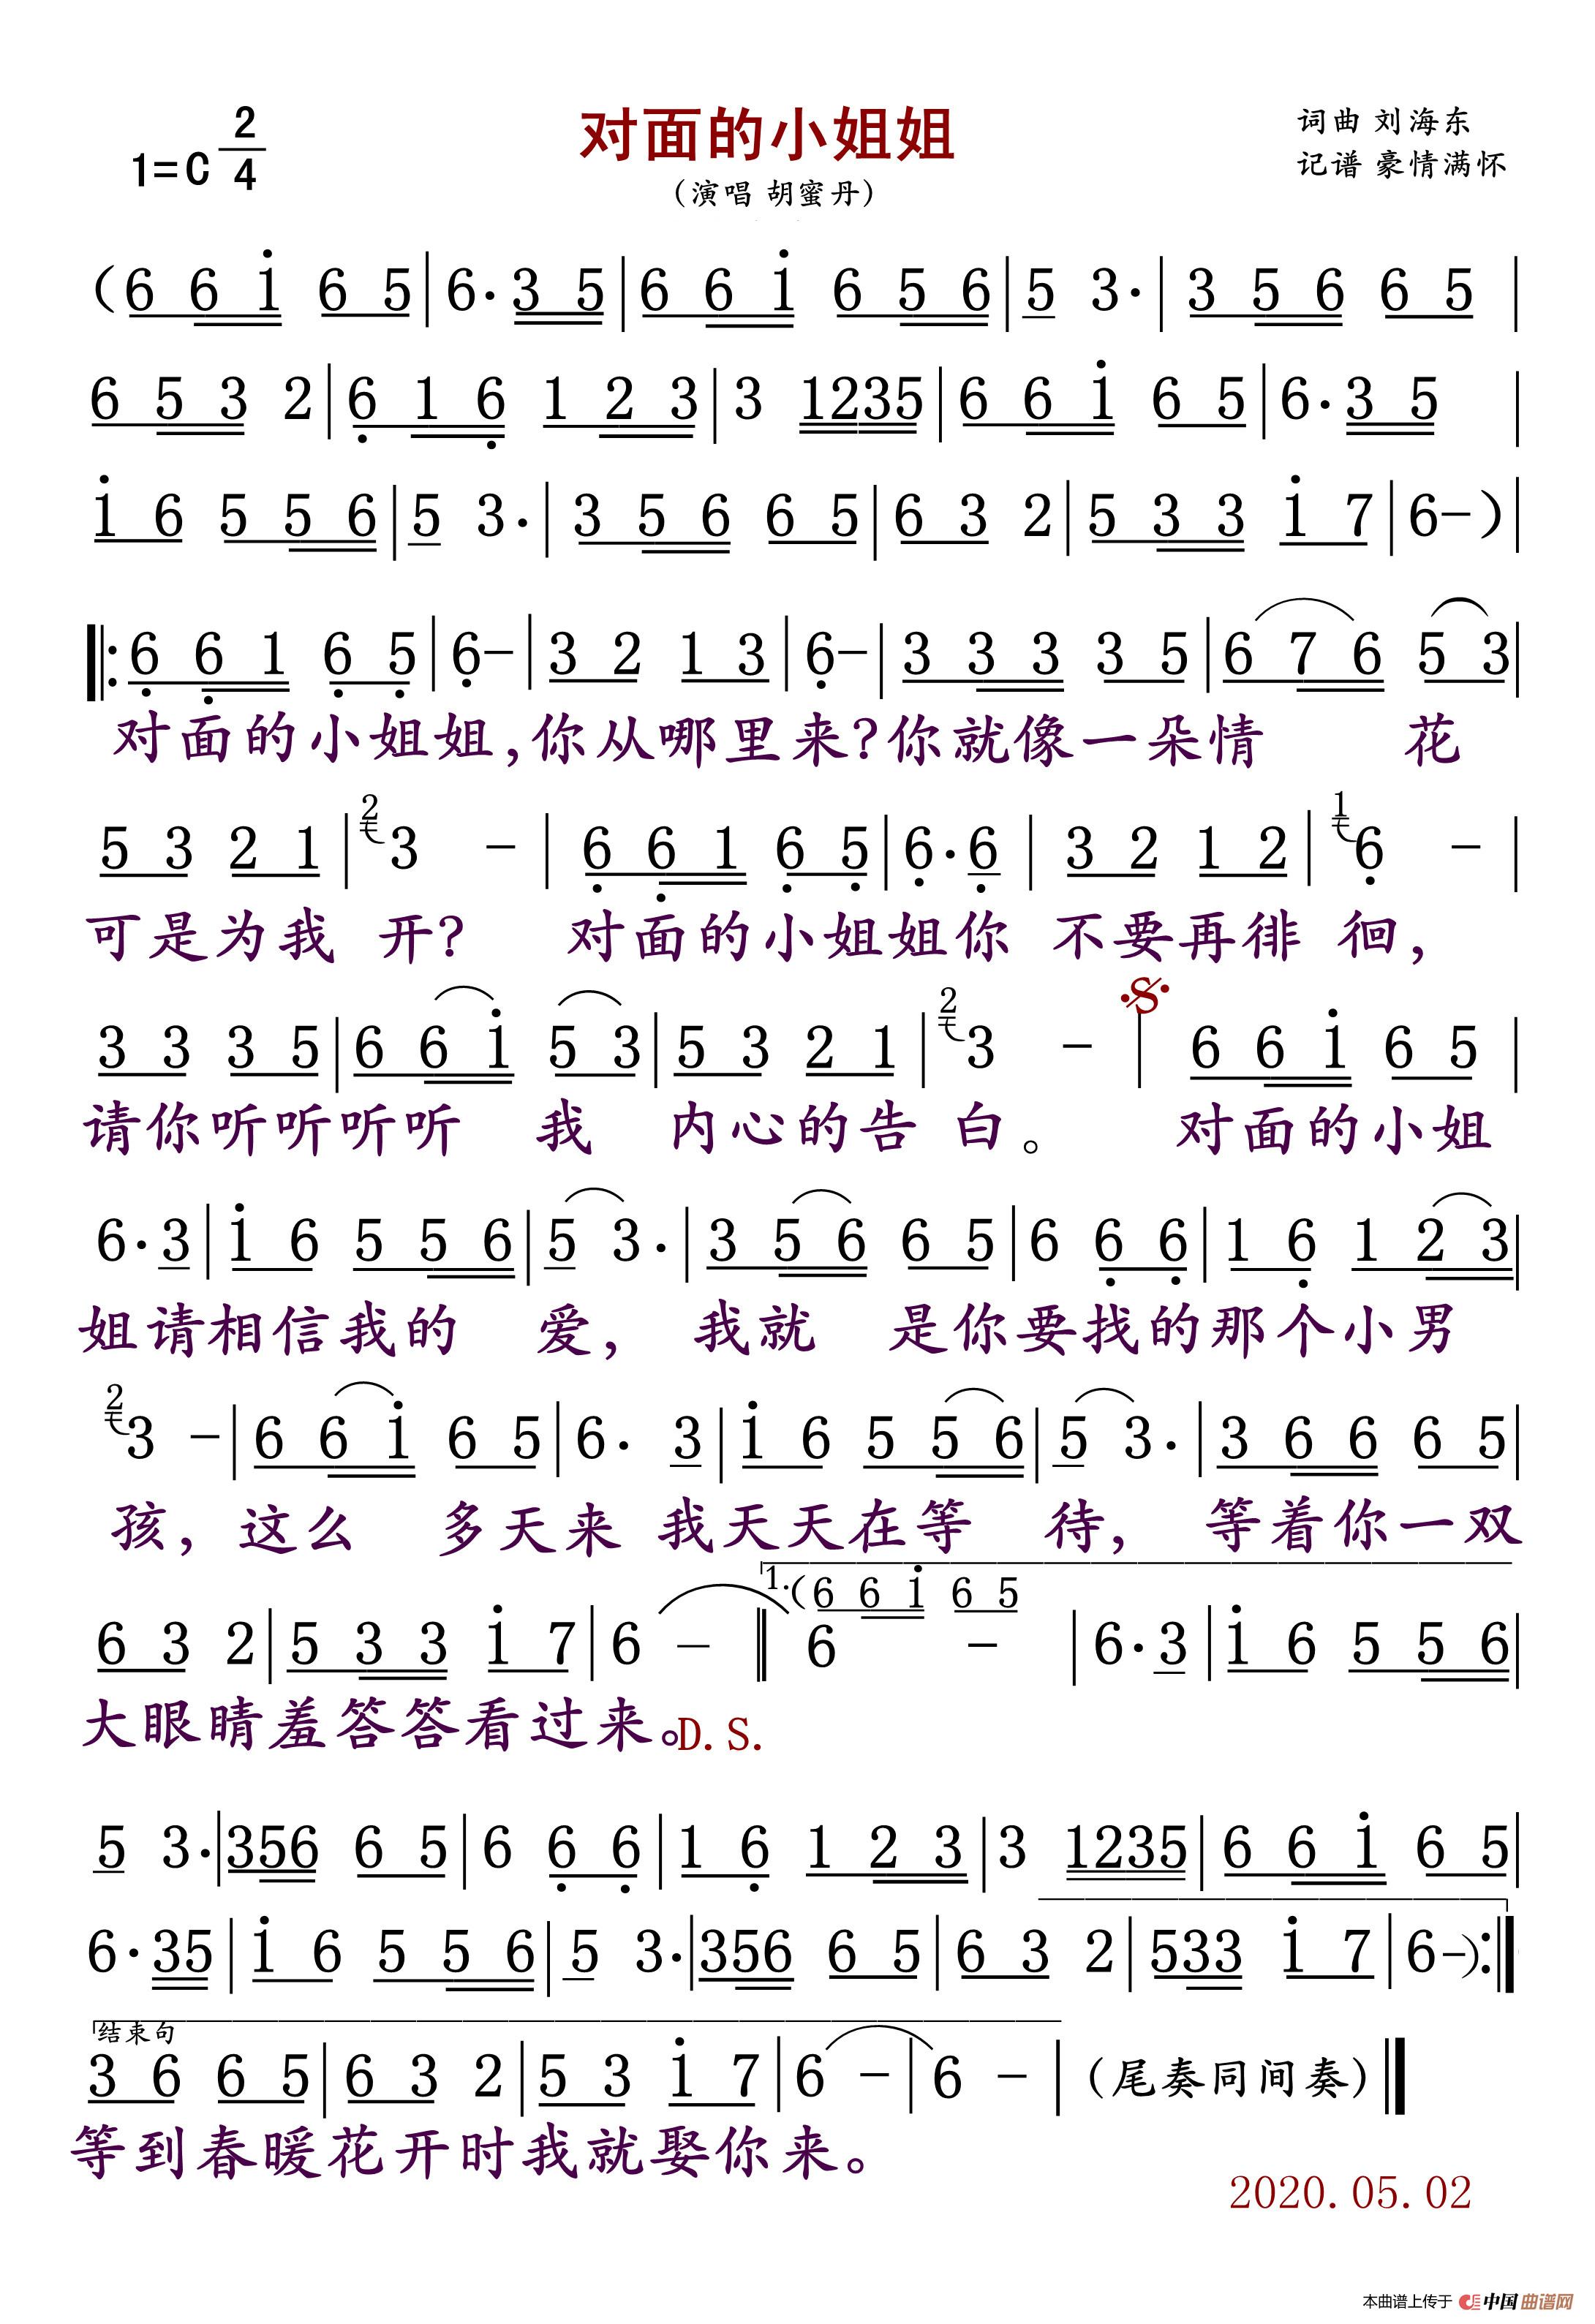 对面的小姐姐
1=C 2/4
(演唱 胡蜜丹)
词曲 刘海东
记谱 豪情满怀
(6 6 i 6 5 | 6· 3 5 | 6 6 i 6 5 6 | 5 3· | 3 5 6 6 5 |
6 5 3 2 | 6 1 6 1 2 3 | 3 1235 | 6 6 i 6 5 | 6· 3 5 |
i 6 5 5 6 | 5 3· | 3 5 6 6 5 | 6 3 2 | 5 3 3 i 7 | 6 - ) |
‖: 6 6 1 6 5 | 6 - | 3 2 1 3 | 6 - | 3 3 3 3 5 | 6 7 6 5 3 |
对面的小姐姐,你从哪里来?你就像一朵情 花
5 3 2 1 | 2 3 - | 6 6 1 6 5 | 6· 6 | 3 2 1 2 | 1 6 - |
可是为我 开? 对面的小姐姐你 不要再徘 徊,
3 3 3 5 | 6 6 i 5 3 | 5 3 2 1 | 2 3 - | 6 6 i 6 5 |
请你听听听听 我 内心的告 白。 对面的小姐
6· 3 | i 6 5 5 6 | 5 3· | 3 5 6 6 5 | 6 6 6 | 1 6 1 2 3 |
姐请相信我的 爱, 我就 是你要找的那个小男
2 3 - | 6 6 i 6 5 | 6· 3 | i 6 5 5 6 | 5 3· | 3 6 6 6 5 |
孩, 这么 多天来 我天天在等 待, 等着你一双
1. (6 6 i 6 5
6 3 2 | 5 3 3 i 7 | 6 - ‖ 6 - | 6· 3 | i 6 5 5 6 |
大眼睛羞答答看过来。D.S.
5 3· | 356 6 5 | 6 6 6 | 1 6 1 2 3 | 3 1235 | 6 6 i 6 5 |
6· 35 | i 6 5 5 6 | 5 3· | 356 6 5 | 6 3 2 | 533 i 7 | 6 - ) :‖
结束句
3 6 6 5 | 6 3 2 | 5 3 i 7 | 6 - | 6 - | (尾奏同间奏) ‖
等到春暖花开时我就娶你来。
2020.05.02
本曲谱上传于 中国曲谱网